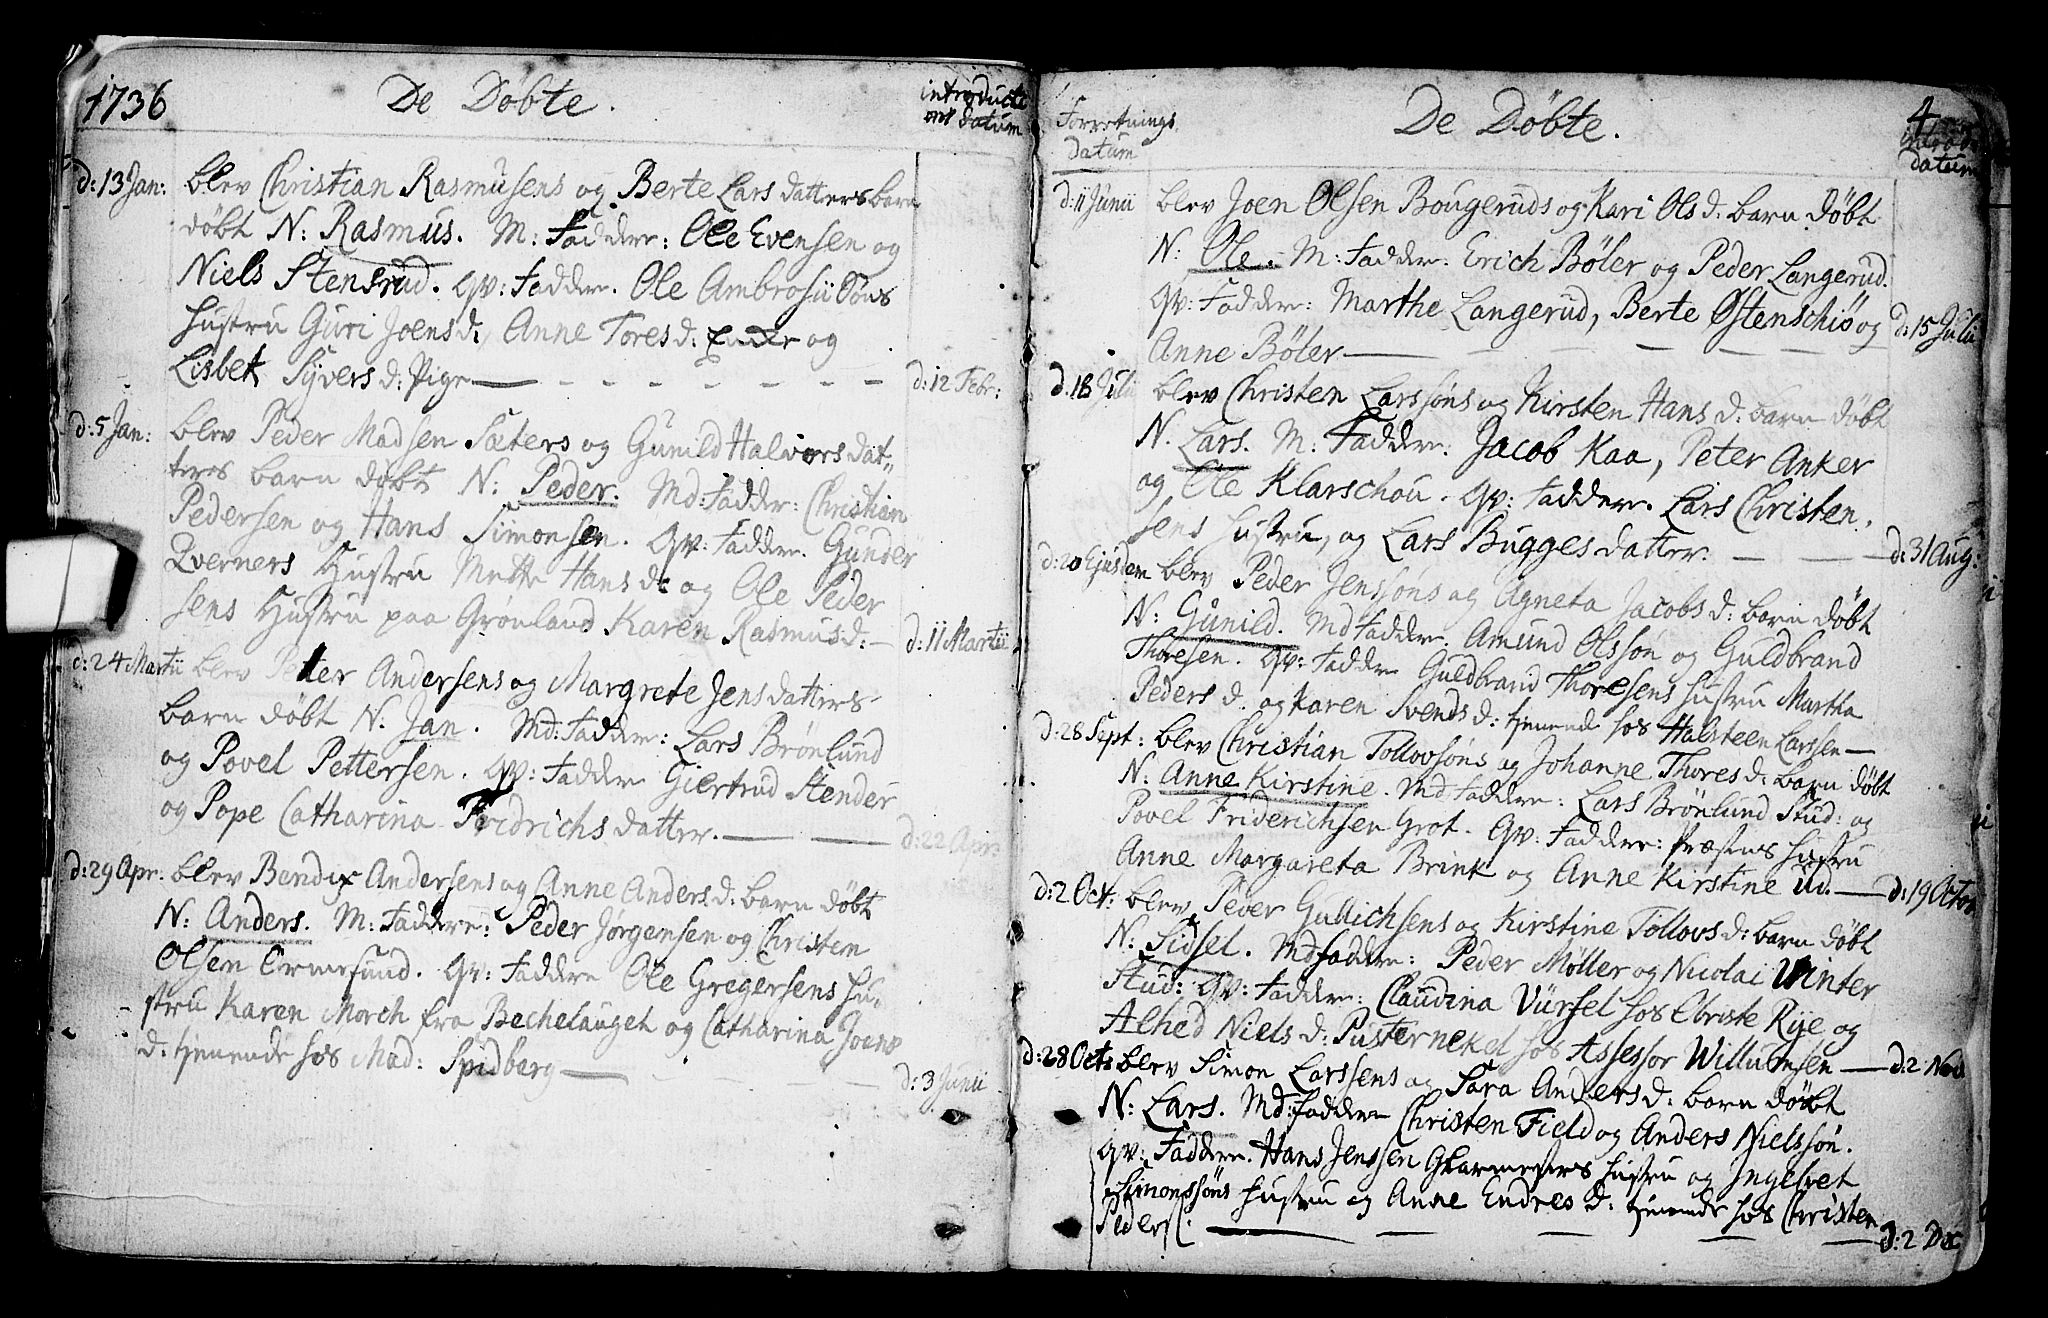 1736 De Döbte. introducti
ons datum
d: 13 Jan: blev Christian Rasmusens og Berte Lars datters barn
döbt N: Rasmus. M: Fadder: Ole Evensen og
Niels Stensrud. qv: Fadder. Ole Ambrosii Söns
Hustru Guri Joens d: Anne Tores d: og
Lisbet Syvers d: Pige — d: 12 Febr:
d: 5 Jan: blev Peder Madsen Sæters og Gunild Halvors dat„
ters barn döbt N: Peder. Md: Fadder: Christian
Pedersen og Hans Simonsen. qv: Fadder. Gunder
Qverners Hustru Mette Hans d: og Ole Peder
sens Hustru paa Grönland Karen Rasmus d: — d: 11 Martii
d: 24 Martii blev Petter Andersens og Margrete Jens datters
barn döbt N. Jan. Md: Fadder: Lars Brönlund
og Povel Pettersen. qv: Fadder Giertrud Stender
og Pige Catharina Fridrichs datter. — d: 22 Apr:
d: 29 Apr: blev Bendix Andersens og Anne Anders d: barn döbt
N: Anders. M: Faddere: Peder Jörgensen og Christen
Olsen Ormesund. qv: Fadder Ole Gregersens Hu„
stru Karen Morch fra Bechelauget og Catharina Joens
d: tjenende hos Mad: Spidberg — d: 3 Junii
Forretnings De Döbte. 4
datum datum
d: 11 Junii blev Joen Olsen Bougeruds og Kari Ols d: barn döbt
N: Ole. M: Fadder: Erich Böler og Peder Langerud.
qv: Fadder: Marthe Langerud, Berte Östenschiö og
Anne Böler — d: 15 Julii
d: 18 Juli blev Christen Larssöns og Kirsten Hans d: barn döbt
N. Lars. M: Fadder: Jacob Kaa, Peter Anker
og Ole Klarschou. qv: Fadder. Lars Christen„
sens Hustru, og Lars Bugges datter. — d: 31 Aug:
d: 20 Ejusdem blev Peder Jenssöns og Agneta Jacobs d: barn döbt
N: Gunild. Md Fadder. Amund Olssön og Guldbrand
Thoresen. qv: Fadder Guldbrand Thoresens Hustru Martha
Peders d. og Karen Svends d: tjenende hos Halsteen Larssen —
d: 28 Sept: blev Christian Tollovsöns og Johanne Thores d: barn döbt
N: Anne Kirstine. Md Fadder: Lars Brönlund Stud: og
Povel Friderichsen Grot. qv: Fadder: Præstens Hustru
Anne Margareta Brink og Anne Kirstine Ud. — d: 19 Octob
d: 2 Oct: blev Siver Gullichsens og Kirstine Tollovs d: barn döbt
N: Sidsel. Md Fadder: Peder Möller og Nicolai Winter
Stud: qv: Fadder: Claudina Vürsel hos Christe Rye og
Alhed Niels d: Pusternekel hos Assessor Willumsen — d: 2 Nov
d: 28 Octs blev Simon Larssens og Sara Anders d: barn döbt
N: Lars. Md: Fadder Christen Field og Anders Nielssön.
qv: Fadder. Hans Jenssen Glarmesters Hustru og Ingebret
Simonssöns Hustru og Anne Endres d: tjenende hos Christen
Peders: — d: 2 Dec